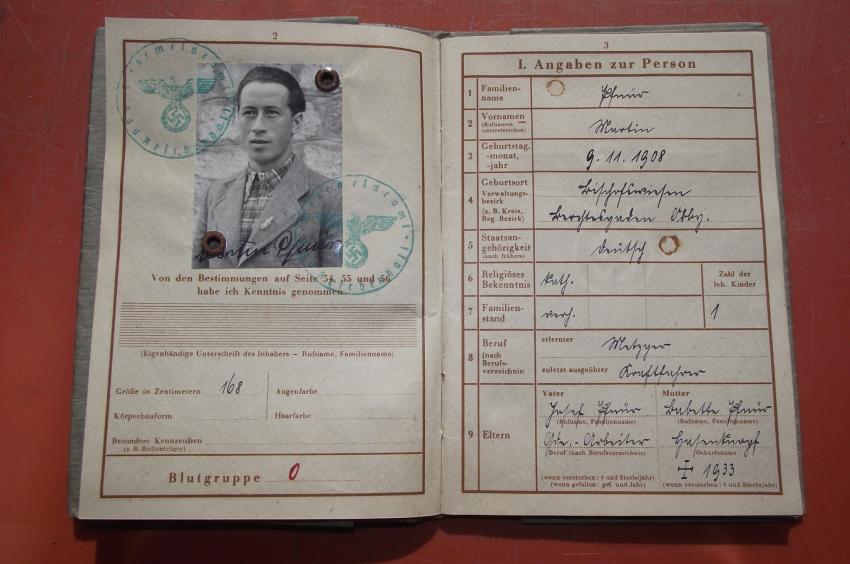 2
Martin Pfnür
Von den Bestimmungen auf Seite 54, 55 und 56
habe ich Kenntnis genommen
(Eigenhändige Unterschrift des Inhabers — Rufname, Familienname)
Größe in Zentimetern 168 Augenfarbe
Körperbauform Haarfarbe
Besondere Kennzeichen
(z. B. Brillenträger)
Blutgruppe 0
3
I. Angaben zur Person
1 Familien-
name Pfnür
2 Vornamen
(Rufnamen
unterstreichen) Martin
3 Geburtstag,
-monat,
-jahr 9. 11. 1908
4 Geburtsort
Verwaltungs-
bezirk
(z. B. Kreis,
Reg. Bezirk)
Bischofswiesen
Berchtesgaden Obby.
5 Staatsan-
gehörigkeit
(auch frühere) deutsch
6 Religiöses
Bekenntnis kath. Zahl der
leb. Kinder
7 Familien-
stand verh. 1
8 Beruf
(nach
Berufs-
verzeichnis)
erlernter Metzger
zuletzt ausgeübter Kraftfahrer
9 Eltern
Vater Mutter
Josef Pfnür Babette Pfnür
(Rufname, Familienname) (Rufname, Familienname)
Arbeiter Hasenknopf
Beruf (nach Berufsverzeichnis) Geburtsname
1933
(wenn verstorben: † und Sterbejahr)
(wenn gefallen: gef. und Jahr) (wenn verstorben: † und Sterbejahr)